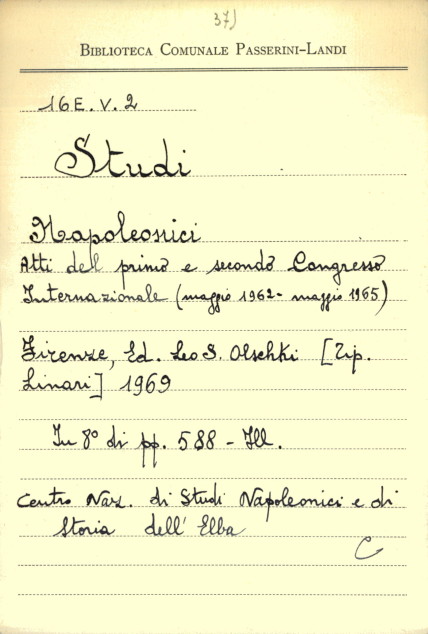 37)
BIBLIOTECA COMUNALE PASSERINI-LANDI
16 E. V. 2
Studi
Napoleonici
Atti del primo e secondo Congresso
Internazionale (maggio 1962 - maggio 1965)
Firenze, Ed. Leo S. Olschki [Tip.
Linari] 1969
In 8° di pp. 588 - Ill.
Centro Naz. di Studi Napoleonici e di
Storia dell' Elba
C